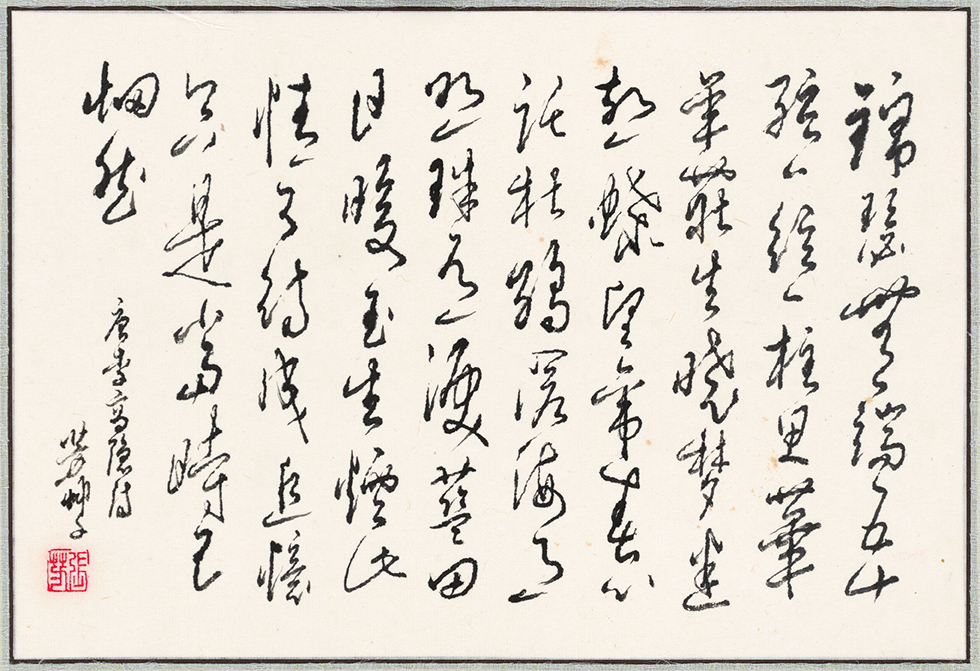 錦瑟無端五十
弦一絃一柱思華
年莊生曉夢迷
蝶望帝春心
託杜鵑滄海月
明珠有淚藍田
日暖玉生煙此
情可待成追憶
只是當時已
惘然
唐李商隱詩